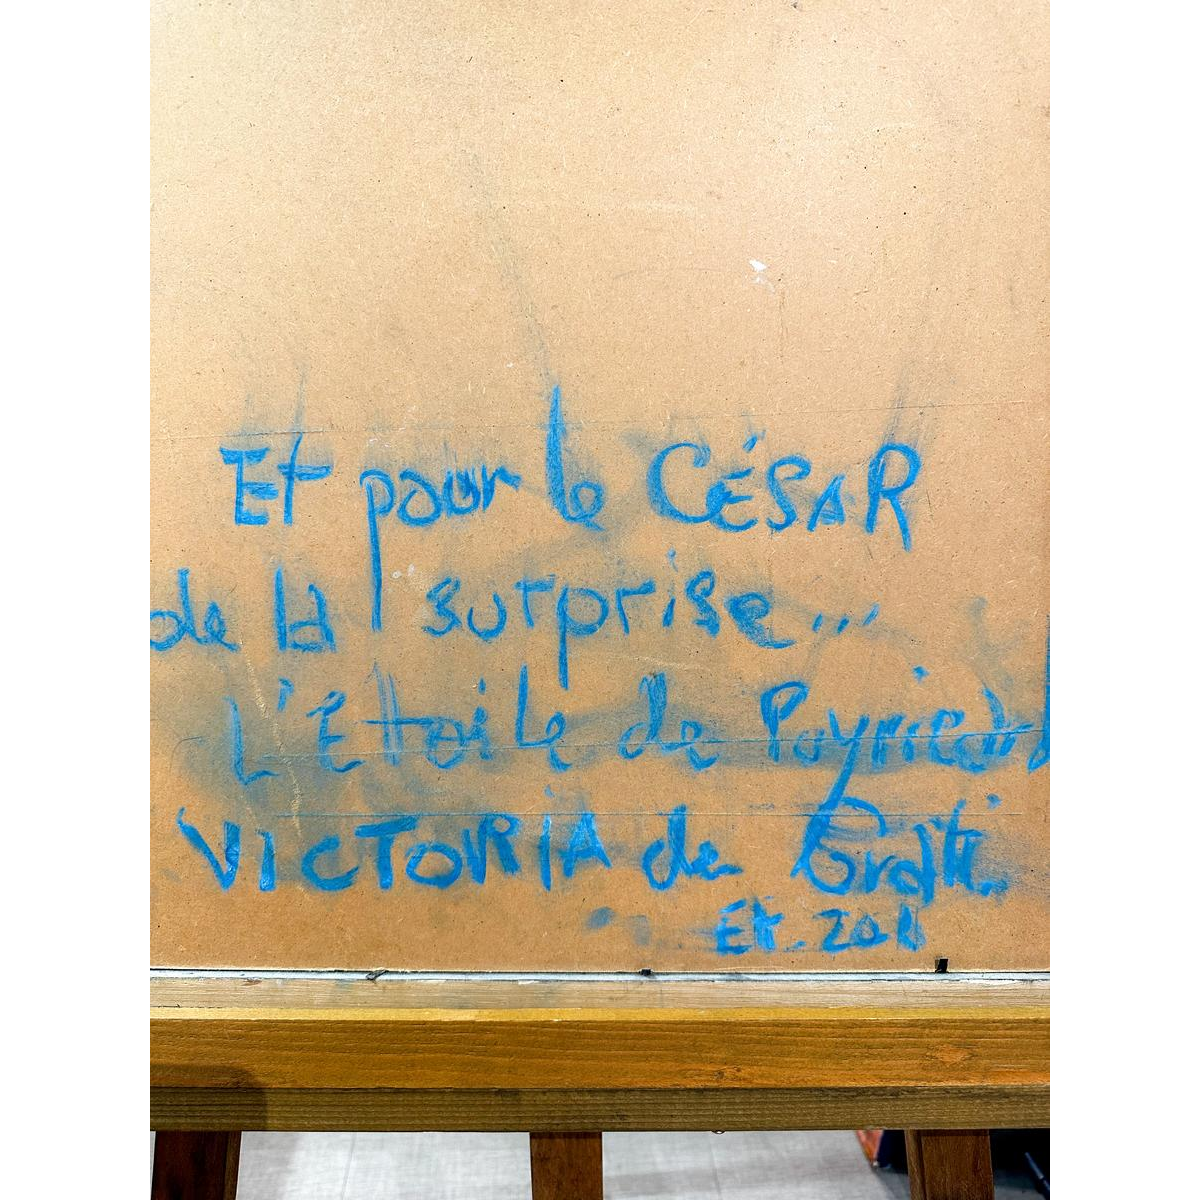 Et pour le CÉSAR
de la surprise...
L'Etoile de
VICTORIA de
Et